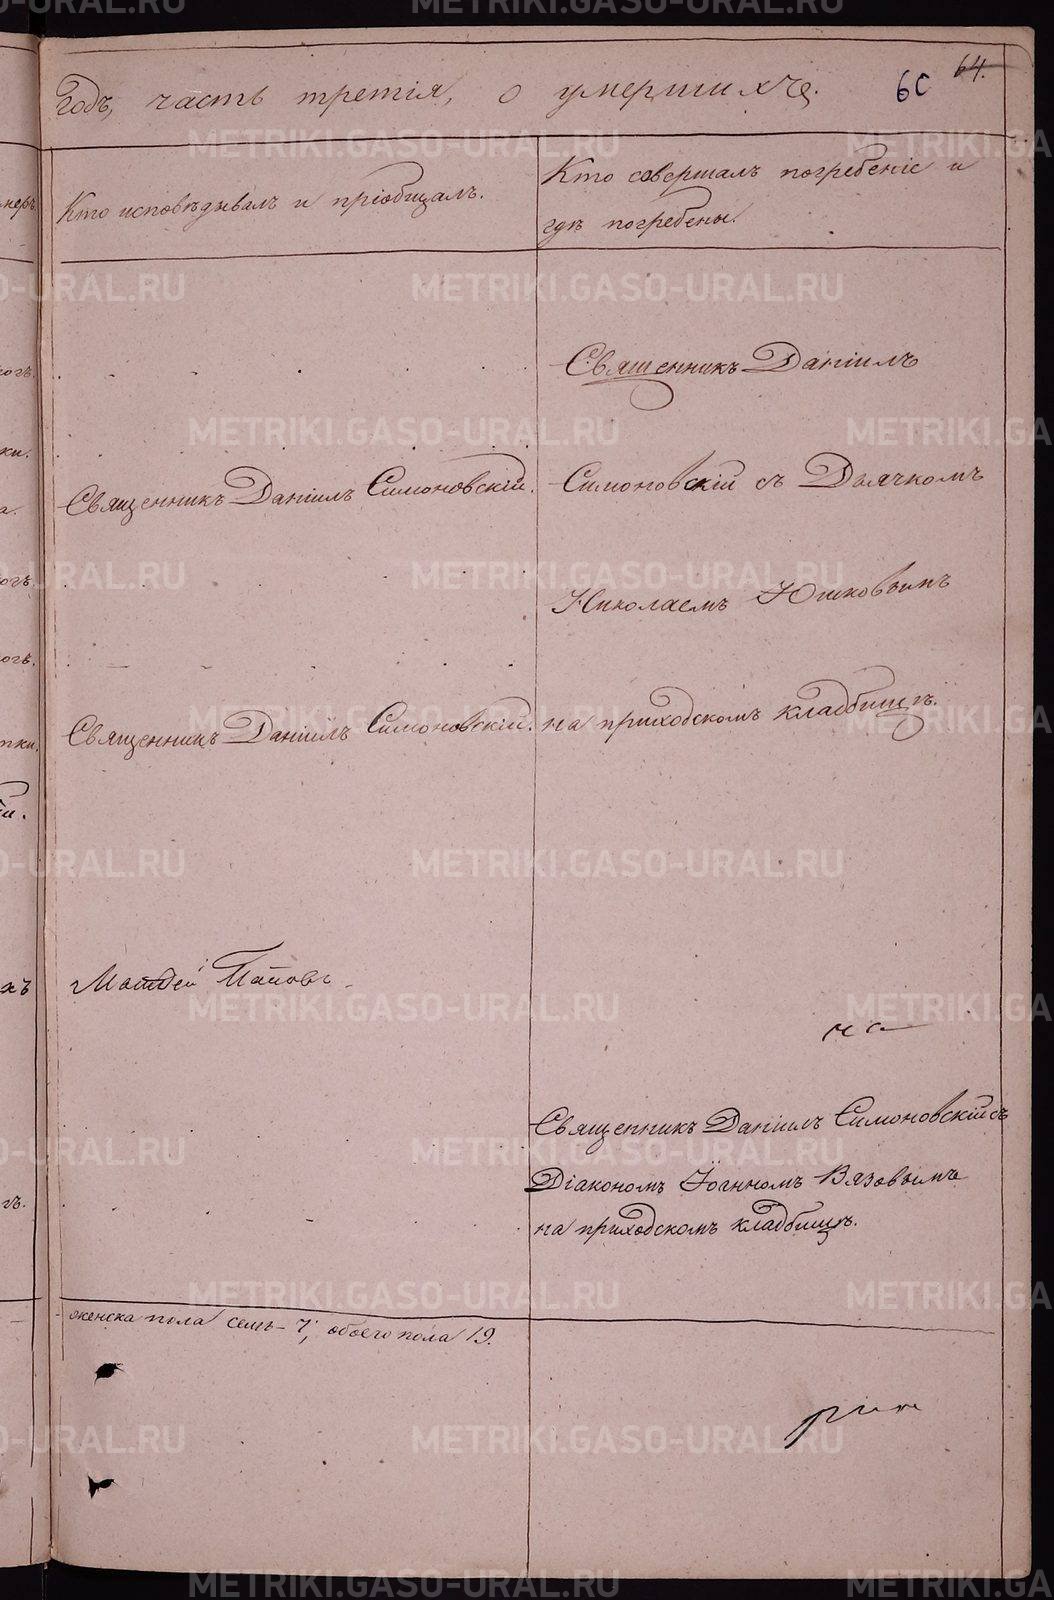 годъ, часть третія, о умершихъ.
60
64.
Кто исповѣдывалъ и пріобщалъ.
Кто совершалъ погребеніе и
гдѣ погребены.
Священникъ Даніилъ
Священникъ Даніилъ Симоновскій.
Симоновскій съ Дьячкомъ
Николаемъ Юшковымъ
Священникъ Даніилъ Симоновскій.
на приходскомъ кладбищѣ.
Матѳей Поповъ
на
Священникъ Даніилъ Симоновскій съ
Діакономъ Іоанномъ Вязовымъ
на приходскомъ кладбищѣ.
женска пола семь - 7, обоего пола 19.
METRIKI.GASO-URAL.RU